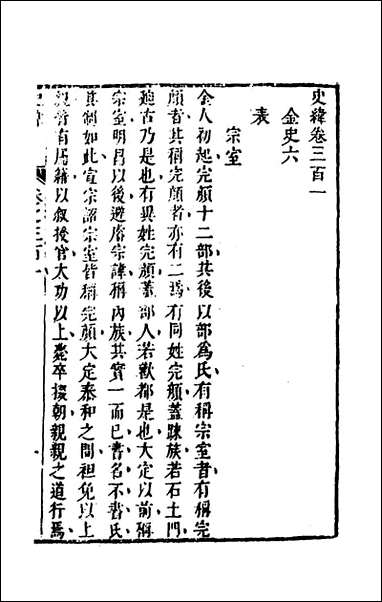 史緯卷三百一
金史六
表
宗室
金人初起完顏十二部其後以部爲氏有稱宗室者有稱完
顏者其稱完顏者亦有二焉有同姓完顏蓋踈族若石土門
廸古乃是也有異姓完顏蓋部人若歡都是也大定以前稱
宗室明昌以後避睿宗諱稱內族其實一而已書名不書氏
其制如此宣宗詔宗室皆稱完顏大定泰和之間袒免以上
親皆有屬籍以叙授官大功以上薨卒輟朝親親之道行焉